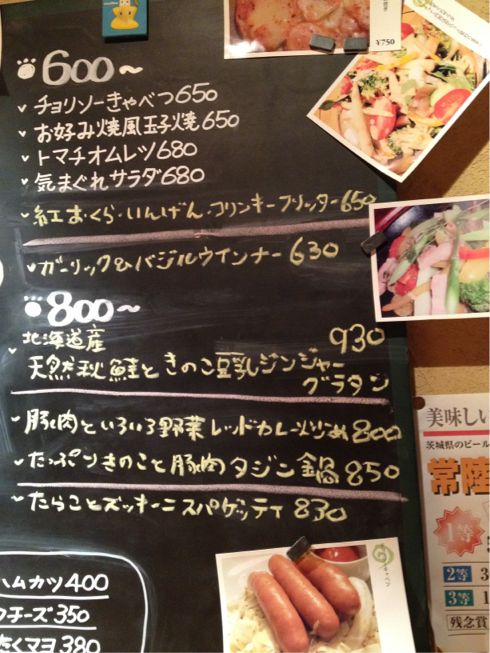 ¥750
600〜
チョリソーきゃべつ650
お好み焼風玉子焼650
トマチオムレツ680
気まぐれサラダ680
紅おくら・いんげん・コリンキーフリッター650
ガーリック&バジルウインナー630
800〜
北海道産
930
天然秋鮭ときのこ豆乳ジンジャー
グラタン
豚肉といろいろ野菜レッドカレー炒め800
たっぷりきのこと豚肉タジン鍋850
たらことズッキーニスパゲッティ830
ハムカツ400
チーズ350
たくマヨ380
美味しい
茨城県のビール
常陸
1等
2等 3
3等 1
残念賞